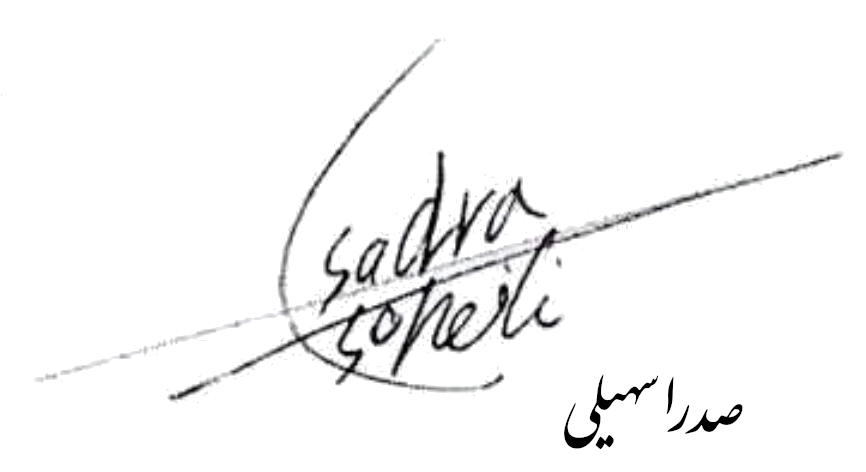 sadra
soheili
صدرا سهیلی